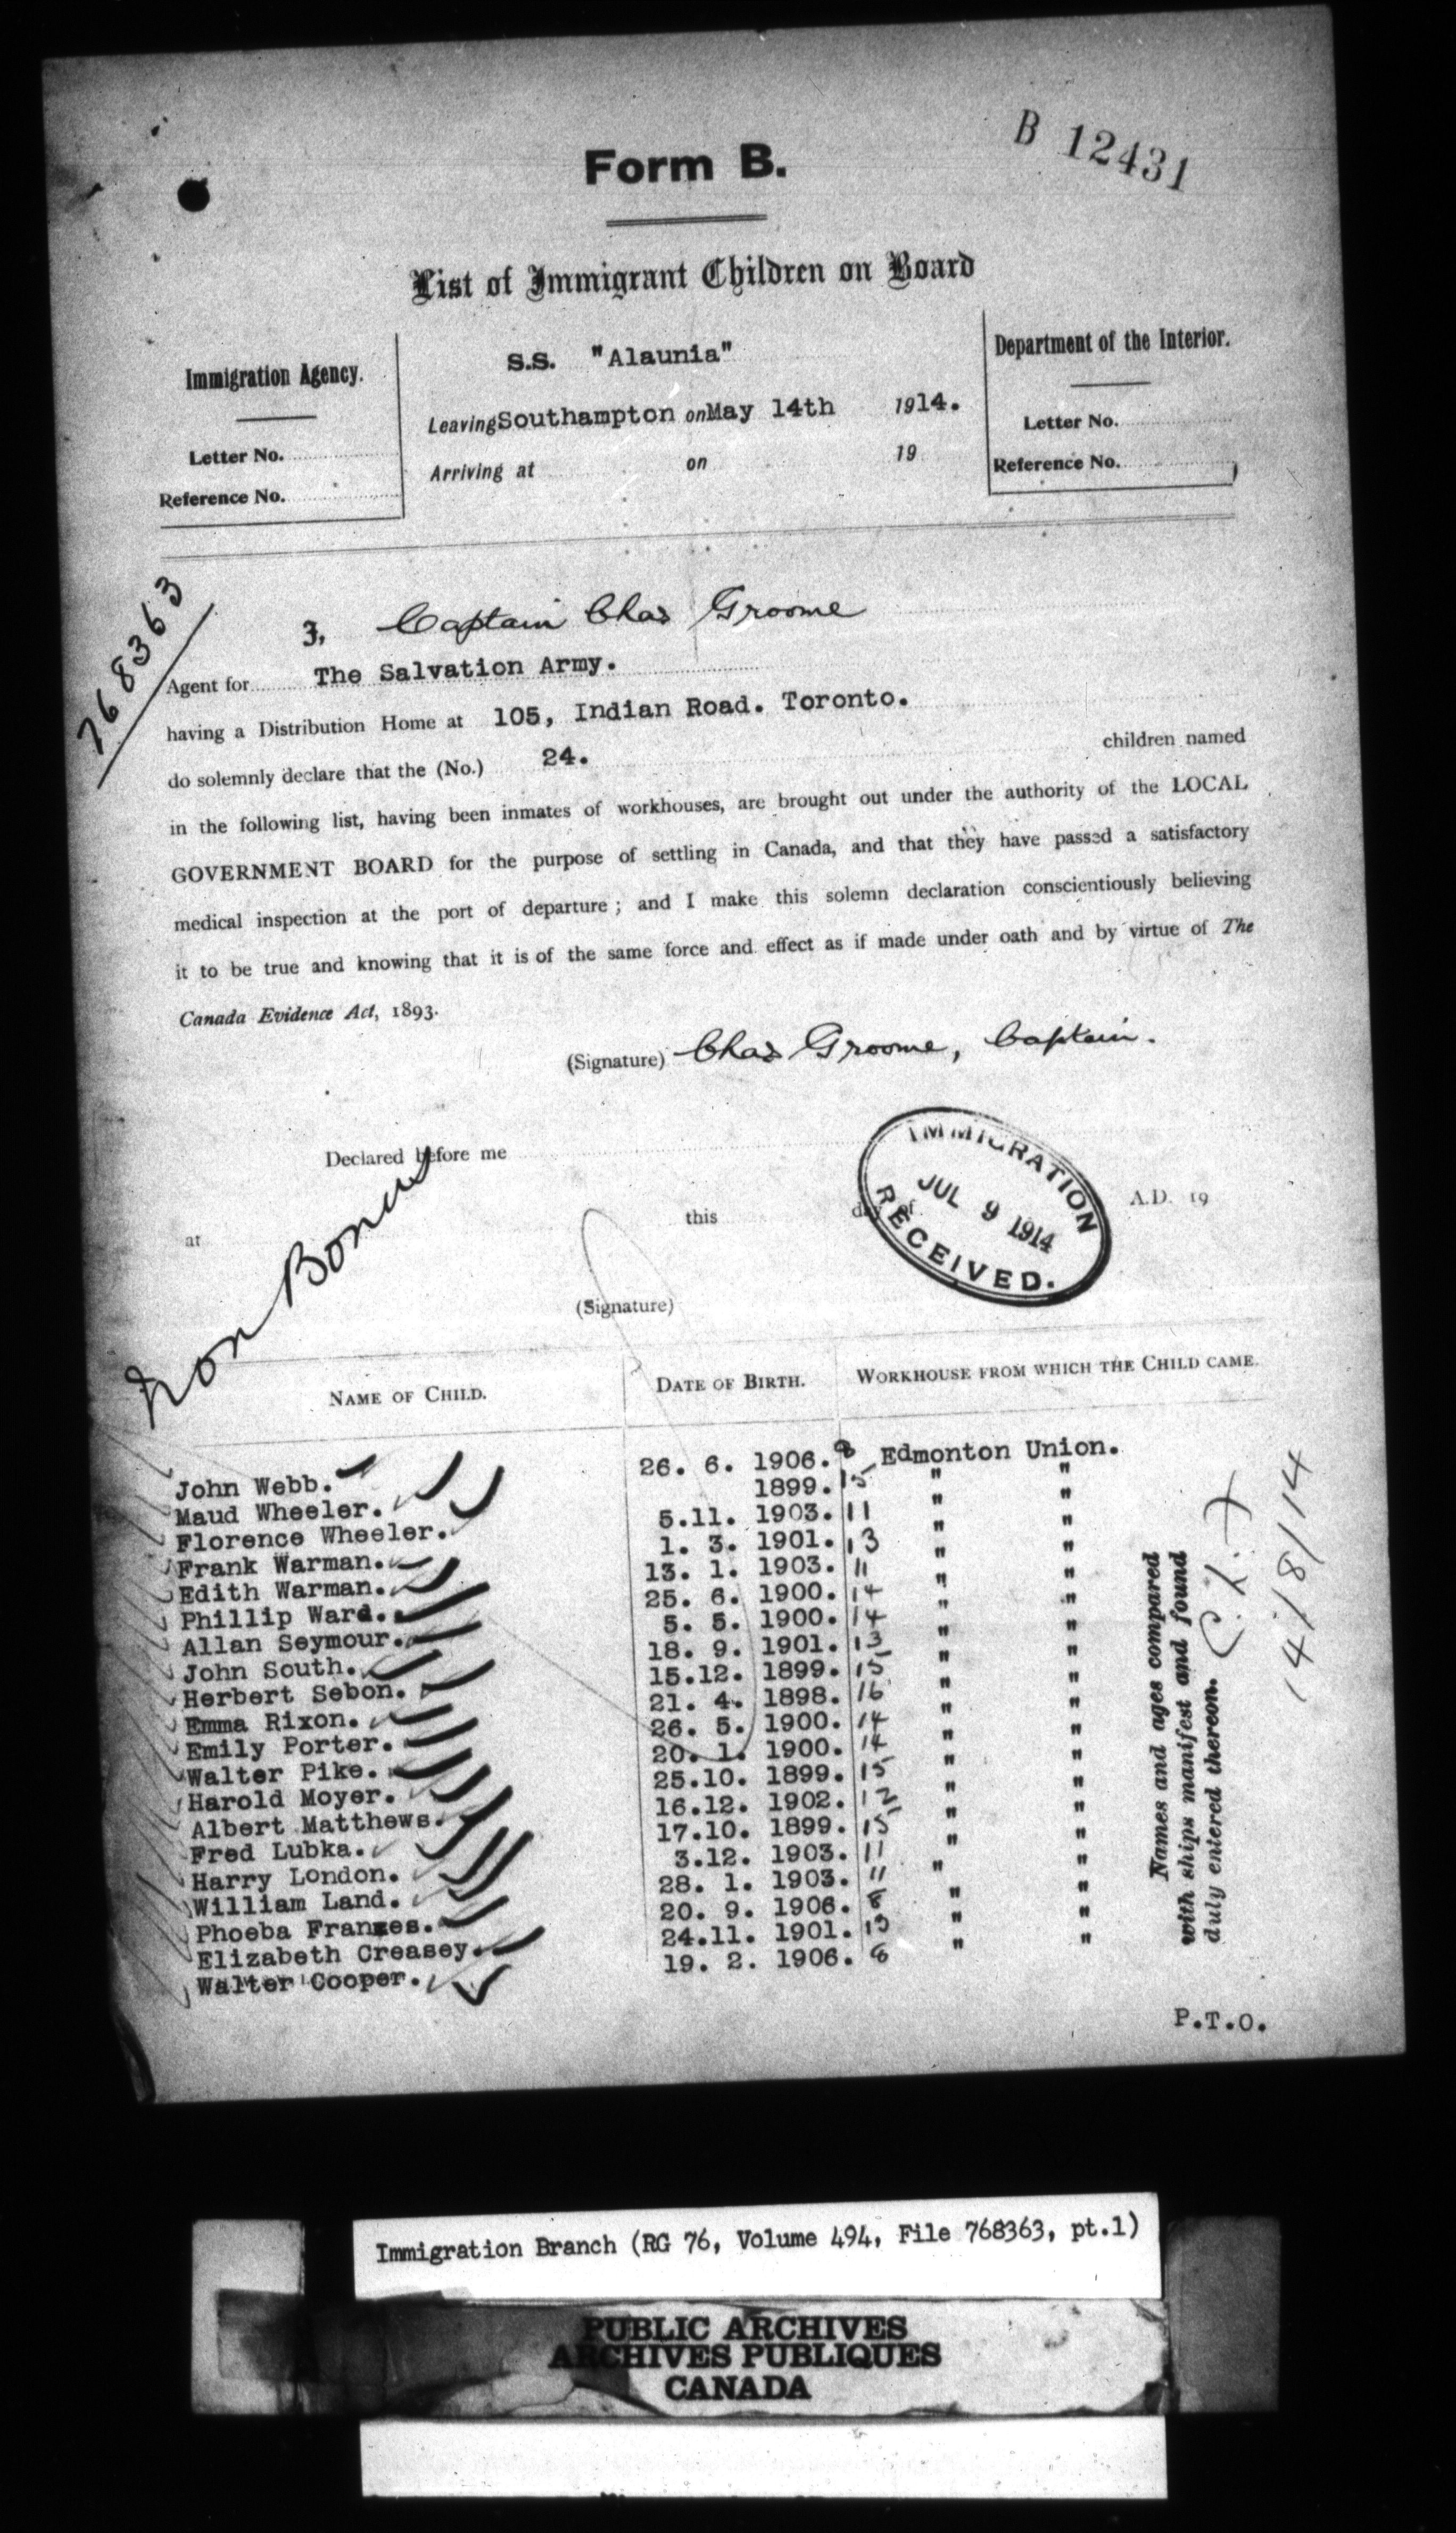 B 12431
Form B.
List of Immigrant Children on Board
Immigration Agency.
Letter No.
Reference No.
S.S. "Alaunia"
Leaving Southampton on May 14th 1914.
Arriving at on 19
Department of the Interior.
Letter No.
Reference No.
768363
I, Captain Chas Groome
Agent for The Salvation Army.
having a Distribution Home at 105, Indian Road. Toronto.
do solemnly declare that the (No.) 24. children named
in the following list, having been inmates of workhouses, are brought out under the authority of the LOCAL
GOVERNMENT BOARD for the purpose of settling in Canada, and that they have passed a satisfactory
medical inspection at the port of departure; and I make this solemn declaration conscientiously believing
it to be true and knowing that it is of the same force and effect as if made under oath and by virtue of The
Canada Evidence Act, 1893.
(Signature) Chas Groome, Captain.
Declared before me
at this day of A.D. 19
IMMIGRATION
JUL 9 1914
RECEIVED.
(Signature)
Non Bonus
NAME OF CHILD. DATE OF BIRTH. WORKHOUSE FROM WHICH THE CHILD CAME.
John Webb. 26. 6. 1906. 8 Edmonton Union.
Maud Wheeler. 1899. 15 " "
Florence Wheeler. 5.11. 1903. 11 " "
Frank Warman. 1. 3. 1901. 13 " "
Edith Warman. 13. 1. 1903. 11 " "
Phillip Ward. 25. 6. 1900. 14 " "
Allan Seymour. 5. 5. 1900. 14 " "
John South. 18. 9. 1901. 13 " "
Herbert Sebon. 15.12. 1899. 15 " "
Emma Rixon. 21. 4. 1898. 16 " "
Emily Porter. 26. 5. 1900. 14 " "
Walter Pike. 20. 1. 1900. 14 " "
Harold Moyer. 25.10. 1899. 15 " "
Albert Matthews. 16.12. 1902. 12 " "
Fred Lubka. 17.10. 1899. 15 " "
Harry London. 3.12. 1903. 11 " "
William Land. 28. 1. 1903. 11 " "
Phoeba Franzes. 20. 9. 1906. 8 " "
Elizabeth Creasey. 24.11. 1901. 13 " "
Walter Cooper. 19. 2. 1906. 8 " "
Names and ages compared
with ships manifest and found
duly entered thereon.
14/8/14
P.T.O.
Immigration Branch (RG 76, Volume 494, File 768363, pt.1)
PUBLIC ARCHIVES
ARCHIVES PUBLIQUES
CANADA